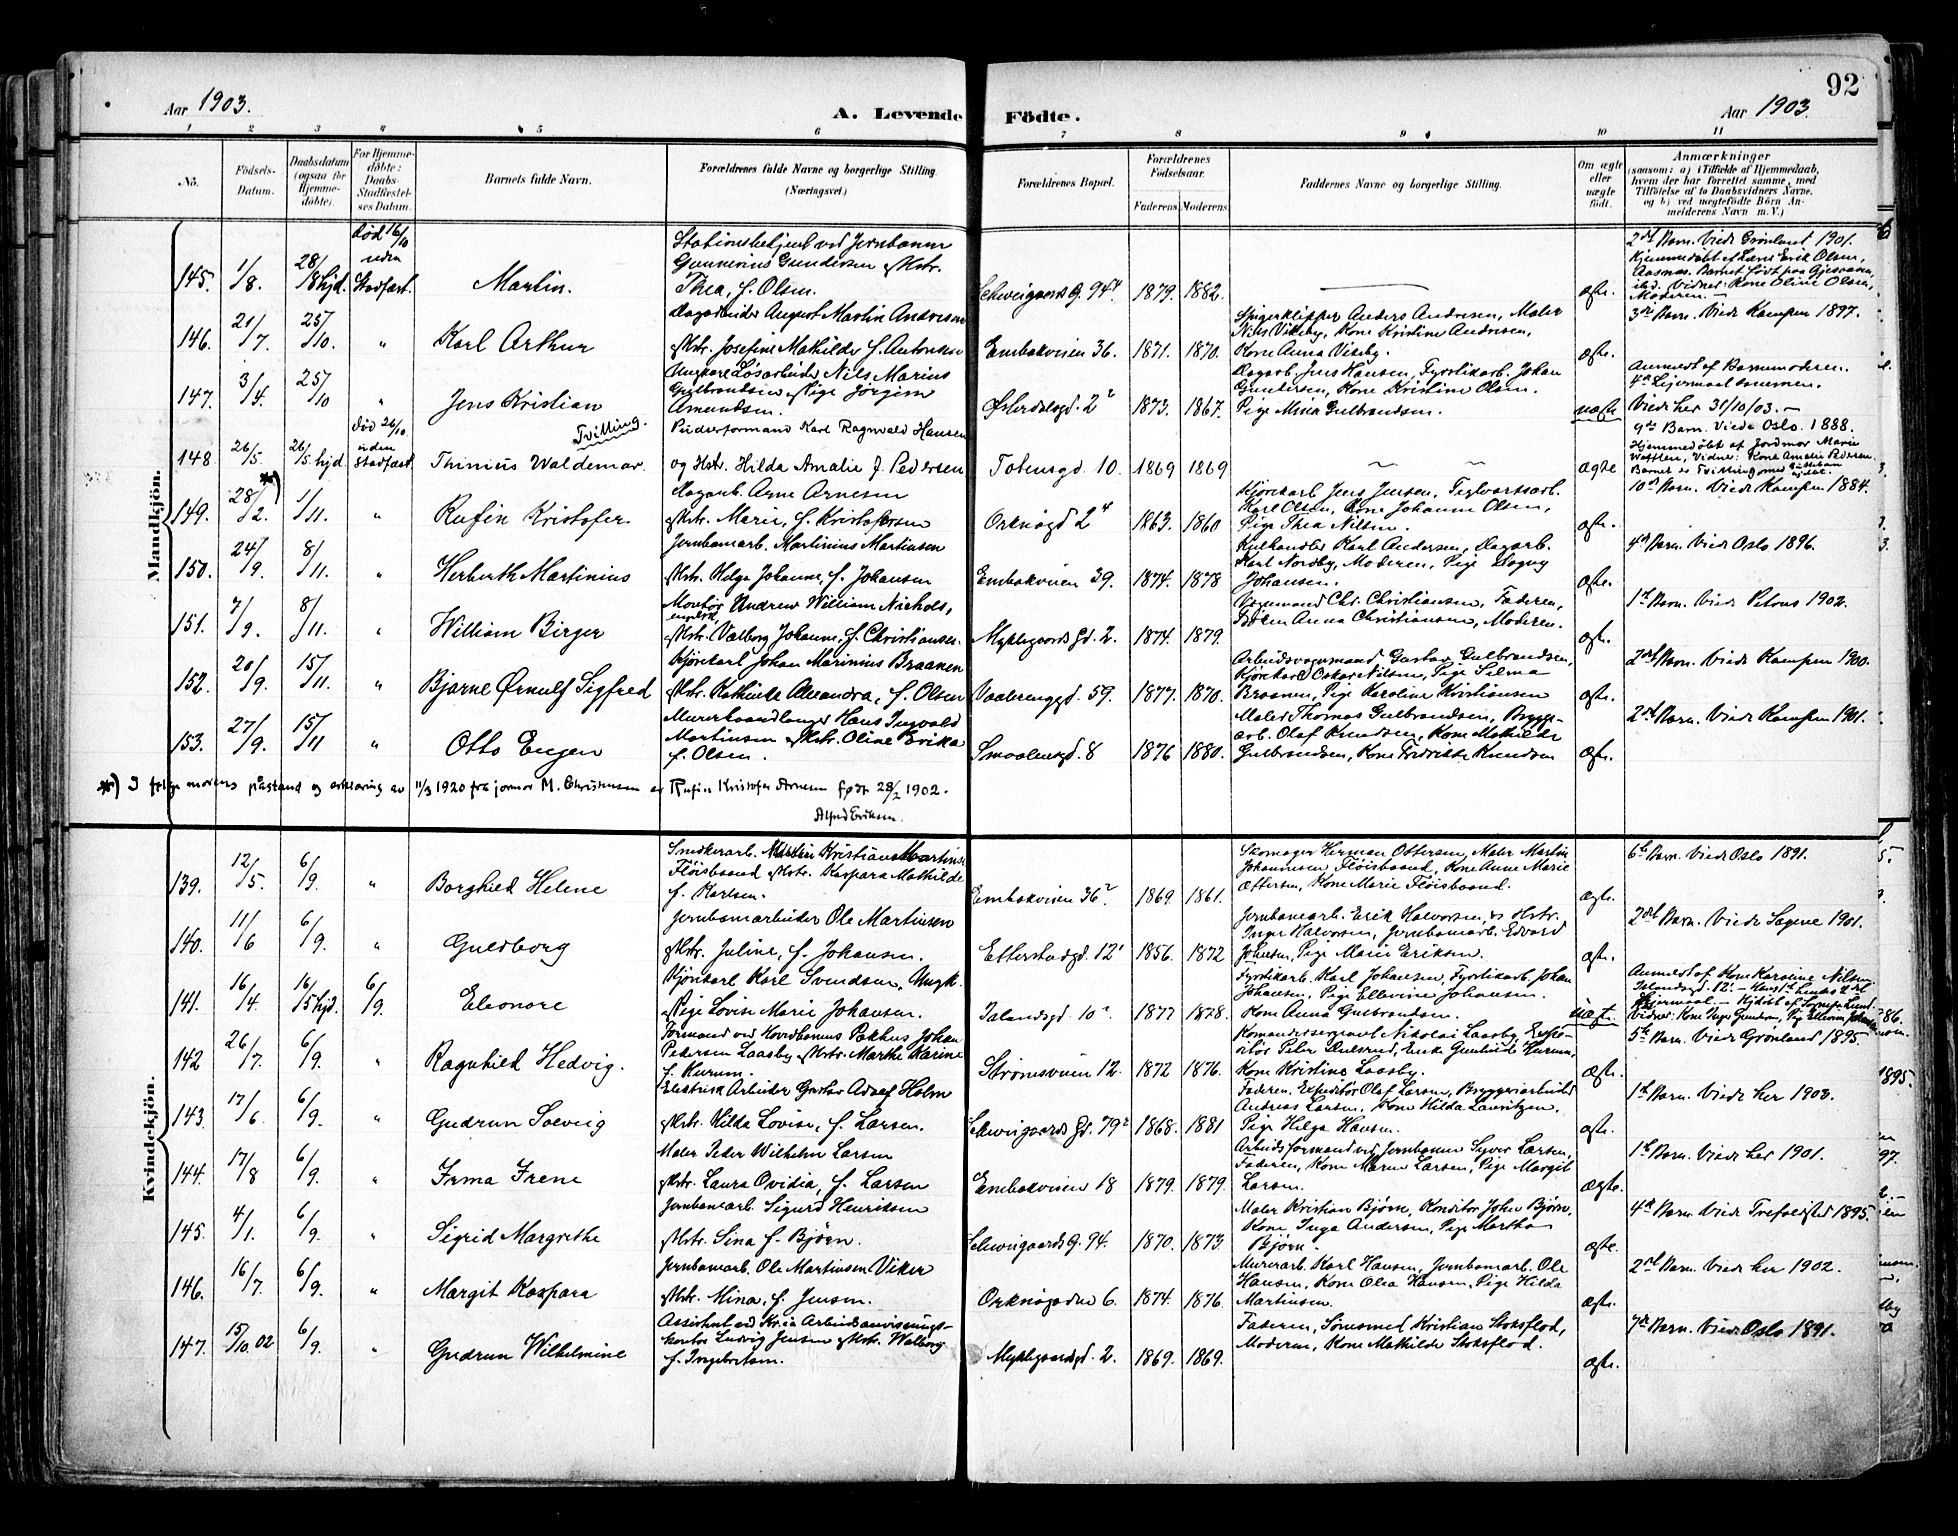 92
Aar 1903.
A. Levende Födte.
Aar 1903.
1 2 3 4 5 6 7 8 9 10 11
No.
Födsels-Datum.
Daabsdatum (ogsaa for Hjemmedöbte).
For Hjemmedöbte: Daabs-Stadfæstelses Datum.
Barnets fulde Navn.
Forældrenes fulde Navne og borgerlige Stilling. (Næringsvei.)
Forældrenes Bopæl.
Forældrenes Födselsaar.
Faderens Moderens
Faddernes Navne og borgerlige Stilling.
Om ægte eller uægte födt.
Anmærkninger (saasom: a) i Tilfælde af Hjemmedaab, hvem der har forrettet samme, med Tilföielse af to Daabsvidners Navne, og b) ved uegtefödte Börn Anmelderens Navn m. V.)
Mandkjön.
145. 1/8. 28/8 hjd. Død 16/10 uden Stadfæst. Martin.
Stationsbetjent ved Jernbanen
Gunnerius Gundersen & Hstr.
Thea, f. Olsen.
Schweigaards G. 94 1879. 1882. ægte.
2det Barn. Viede Grønland 1901.
Hjemmedøbt af Lars Erik Olsen,
Aasnas. Barnet født paa
Vidner: Kone Oline Olsen,
Moderen.
146. 21/7. 25/10. " Karl Arthur
Dagarbeider August Martin Andresen
& Hstr. Josefine Mathilde f. Antonsen
Embakveien 36. 1871. 1870.
Spigerklipper Anders Andresen, Maler
Nils Viksby, Kone Kristine Andresen,
Kone Anna Viksby. ægte.
3die Barn. Viede Kampen 1897.
147. 3/4. 25/10 " Jens Kristian
Ungkarl Løsarbeider Nils Marius
Gulbrandsen & Pige Jørgine
Amundsen.
Østerdalsgd. 2 1873. 1867.
Dagarb. Jens Hansen, Fyrstikarb. Johan
Gundersen, Kone Kristine Olsen.
Pige Mina Gulbrandsen. uægte
Anmeldt af Barnemoderen.
4de Leiermaal sammen.
Viede her 31/10/03.
148 26/5. 26/5 hjd. død 26/10 uden Stadfæst. Tvilling. Thinius Waldemar.
Pudserformand Karl Ragnvald Hansen
og Hst. Hilda Amalie f. Pedersen
Totensgd. 10. 1869 1869 ægte
9de Barn. Viede Oslo. 1888.
Hjemmedøbt af Jordmor Marie
Vidner: Kone Amalie Pedersen
Barnet er Tvilling med
149. 28/2. *) 1/11. " Rufin Kristofer.
Dagarb. Arne Arnesen
& Hstr. Marie, f. Kristofersen
Orknøgd 2 1863. 1860
Kjørekarl Jens Jensen, Teglværksarb.
Karl Olsen, Kone Johanne Olsen,
Pige Thea Nilsen. ægte.
10de Barn. Viede Kampen 1884.
150. 24/9. 8/11. " Herberth Martinius
Jernbanearb. Martinius Martinsen
& Hstr. Helga Johanne, f. Johansen
Embakveien 39. 1874. 1878
Kulhandler Karl Andersen, Dagarb.
Karl Nordby, Moderen, Pige Dagny
Johansen. ægte.
4de Barn. Viede Oslo 1896.
151. 7/9. 8/11. " William Birger
Montør Andrew William Nichols,
engelsk
& Hstr. Valborg Johanne, f. Christiansen.
Myklegaards Gd. 2. 1874. 1879.
Vognmand Chr. Christiansen, Faderen,
Frøken Anna Christiansen, Moderen. ægte.
1ste Barn. Viede Petrus 1902.
152. 20/9. 15/11. " Bjarne Ørnulf Sigfred
Kjørekarl Johan Marinius Braanen
& Hstr. Kathinka Alexandra, f. Olsen
Vaalerenggd. 59. 1877. 1870.
Arbeidsvognmand Gustav Gulbrandsen,
Kjørekarl Oskar Nilsen, Pige Selma
Braanen, Pige Karoline Kristiansen ægte.
2det Barn. Viede Kampen 1900.
153. 27/9. 15/11 " Otto Eugen
Murerhaandlanger Hans Ingvald
Martinsen & Hstr. Oline Erika
f. Olsen.
Smaalensgd. 8 1876 1880.
Maler Thomas Gulbrandsen, Brygge-
arb. Olaf Knudsen, Kone Mathilde
Gulbrandsen, Kone Fredrikke Knudsen ægte.
2det Barn. Viede Kampen 1901.
*) I følge morens påstand og erklæring av 11/3 1920 fra jormor M. Christensen er Rufin Kristofer Arnesen født 28/2 1902.
Alfred Eriksen.
Kvindekjön.
139. 12/5. 6/9. " Borghild Helene
Snedkerarb. Kristian Martinsen
Fløisbaand & Hstr. Kaspara Mathilde
f. Karlsen.
Embakveien 36 1869. 1861.
Skomager Herman Ottersen, Maler Martin
Johannesen Fløisbaand, Kone Anne Marie
Ottersen, Kone Marie Fløisbaand. ægte.
6te Barn. Viede Oslo 1891.
140. 11/6 6/9. " Guldborg
Jernbanearbeider Ole Martinsen
& Hstr. Juline, f. Johansen.
Etterstadgd. 12 1856. 1872
Jernbanearb. Erik Halvorsen, & Hstr.
Inger Halvorsen, Jernbanearb. Edvard
Johansen, Pige Marie Eriksen. ægte.
2det Barn. Viede Sagene 1901.
141. 16/4. 16/5 hjd. 6/9. Eleonore
Kjørekarl Karl Svendsen, Ungk.
& Pige Lovise Marie Johansen.
Jalandsgd. 10 1877 1878.
Fyrstikarb. Karl Johansen, Fyrstikarb. Johan
Johansen, Pige Ellevine Johansen.
Kone Anna Gulbrandsen. uægt.
Anmeldt af Kone Karoline Nilsen
142 26/7. 6/9. " Ragnhild Hedvig.
Formand ved Hovedbanens Pakhus Johan
Pedersen Laasby & Hstr. Marthe Karine
f. Hurum.
Strømsveien 12. 1872 1876.
Komandersergeant Nikolai Laasby,
Kone Kristine Laasby. ægte.
5te Barn. Viede Grønland 1895.
143. 17/6. 6/9. " Gudrun Solveig
Elektrisk Arbeider Gustav Adolf Holm
& Hstr. Hilda Lovise, f. Larsen.
Schweigaards Gd. 79 1868. 1881
Faderen, Expeditør Olaf Larsen, Bryggeriarbeider
Andreas Larsen, Kone Hilda Lauritzen,
Pige Helga Hansen. ægte.
1ste Barn. Viede her 1903.
144. 17/8 6/9. " Irma Irene
Maler Peder Wilhelm Larsen
& Hstr. Laura Ovidia, f. Larsen
Embakveien 18 1879. 1879.
Arbeidsformand ved Jernbanen Syver Larsen,
Faderen, Kone Maren Larsen, Pige Margit
Larsen. ægte.
1ste Barn. Viede her 1901.
145. 4/1. 6/9. " Sigrid Margrethe
Jernbanearb. Sigurd Henriksen
& Hstr. Sina f. Bjørn.
Schweigaards G. 94. 1870. 1873.
Maler Kristian Bjørn, Konditor John Bjørn,
Kone Inga Andersen, Pige Martha
Bjørn. ægte.
4de Barn. Viede Trefoldighed 1895.
146. 16/7. 6/9. " Margit Kaspara
Jernbanearb. Ole Martinsen Viker
& Hstr. Mina, f. Jensen.
Orknøgaden 6. 1874. 1876
Murerarb. Karl Hansen, Jernbanearb. Ole
Hansen, Kone Olea Hansen, Pige Hilda
Martinsen. ægte.
2det Barn. Viede her 1902.
147. 15/10 02 6/9. " Gudrun Wilhelmine
Assistent ved Kr.ia Arbeidsanvisnings-
kontor Ludvig Jensen & Hstr. Walborg
f. Ingebretsen.
Myklegaardsgd. 2. 1869. 1869.
Faderen, Sømsmed Kristian Stoksflod,
Moderen, Kone Mathilde Stoksflod. ægte.
7de Barn. Viede Oslo 1891.